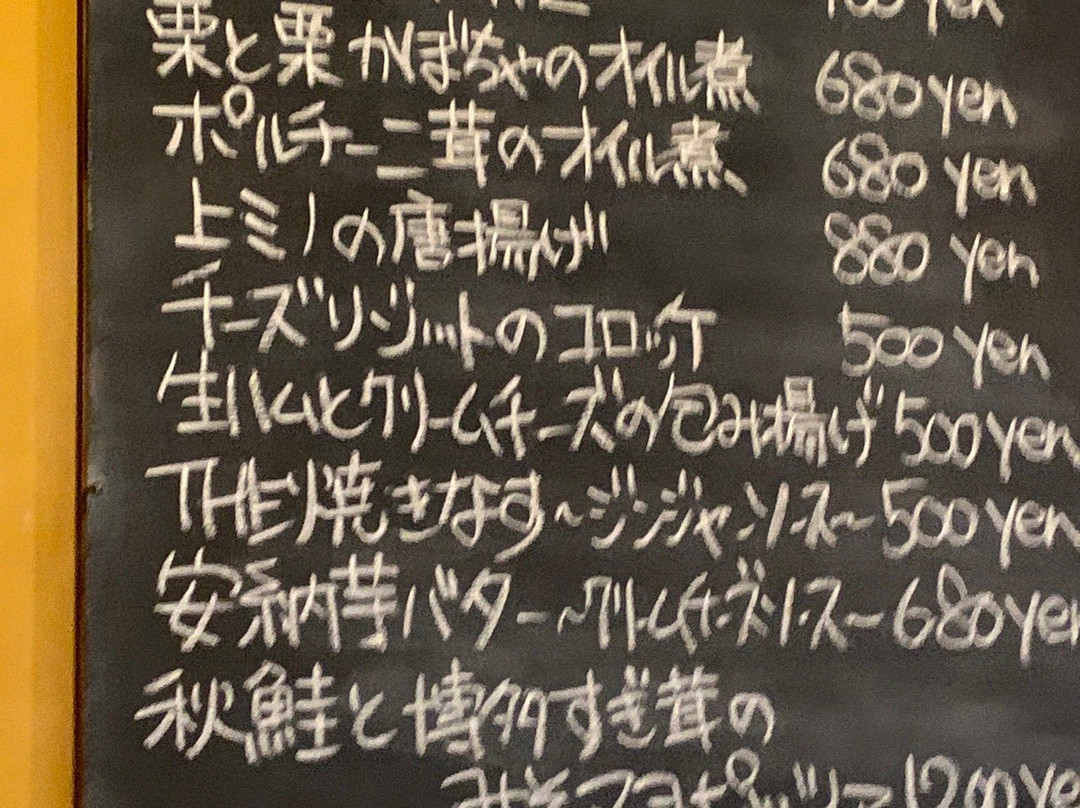 栗と栗かぼちゃのオイル煮 680 yen
ポルチーニ茸のオイル煮 680 yen
上ミノの唐揚げ 880 yen
チーズリゾットのコロッケ 500 yen
生ハムとクリームチーズの包み揚げ 500 yen
THE焼きなす~ジンジャーソース~ 500 yen
安納芋バター~クリームチーズソース~ 680 yen
秋鮭と博多すぎ茸の